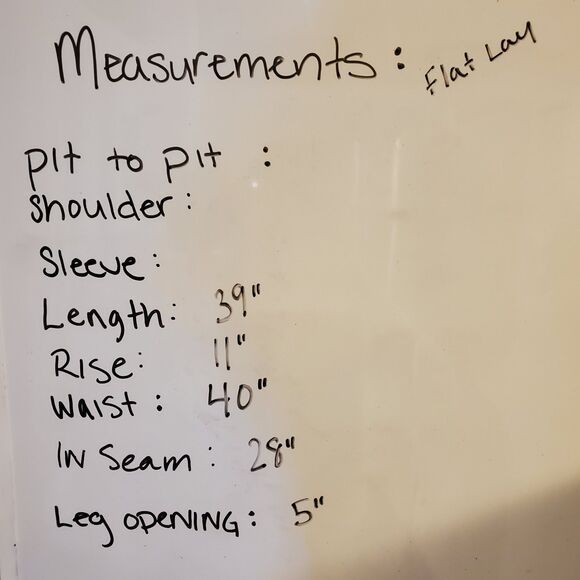 Measurements: Flat Lay
Pit to Pit :
Shoulder:
Sleeve:
Length: 39"
Rise: 11"
Waist: 40"
In Seam: 28"
Leg opening: 5"